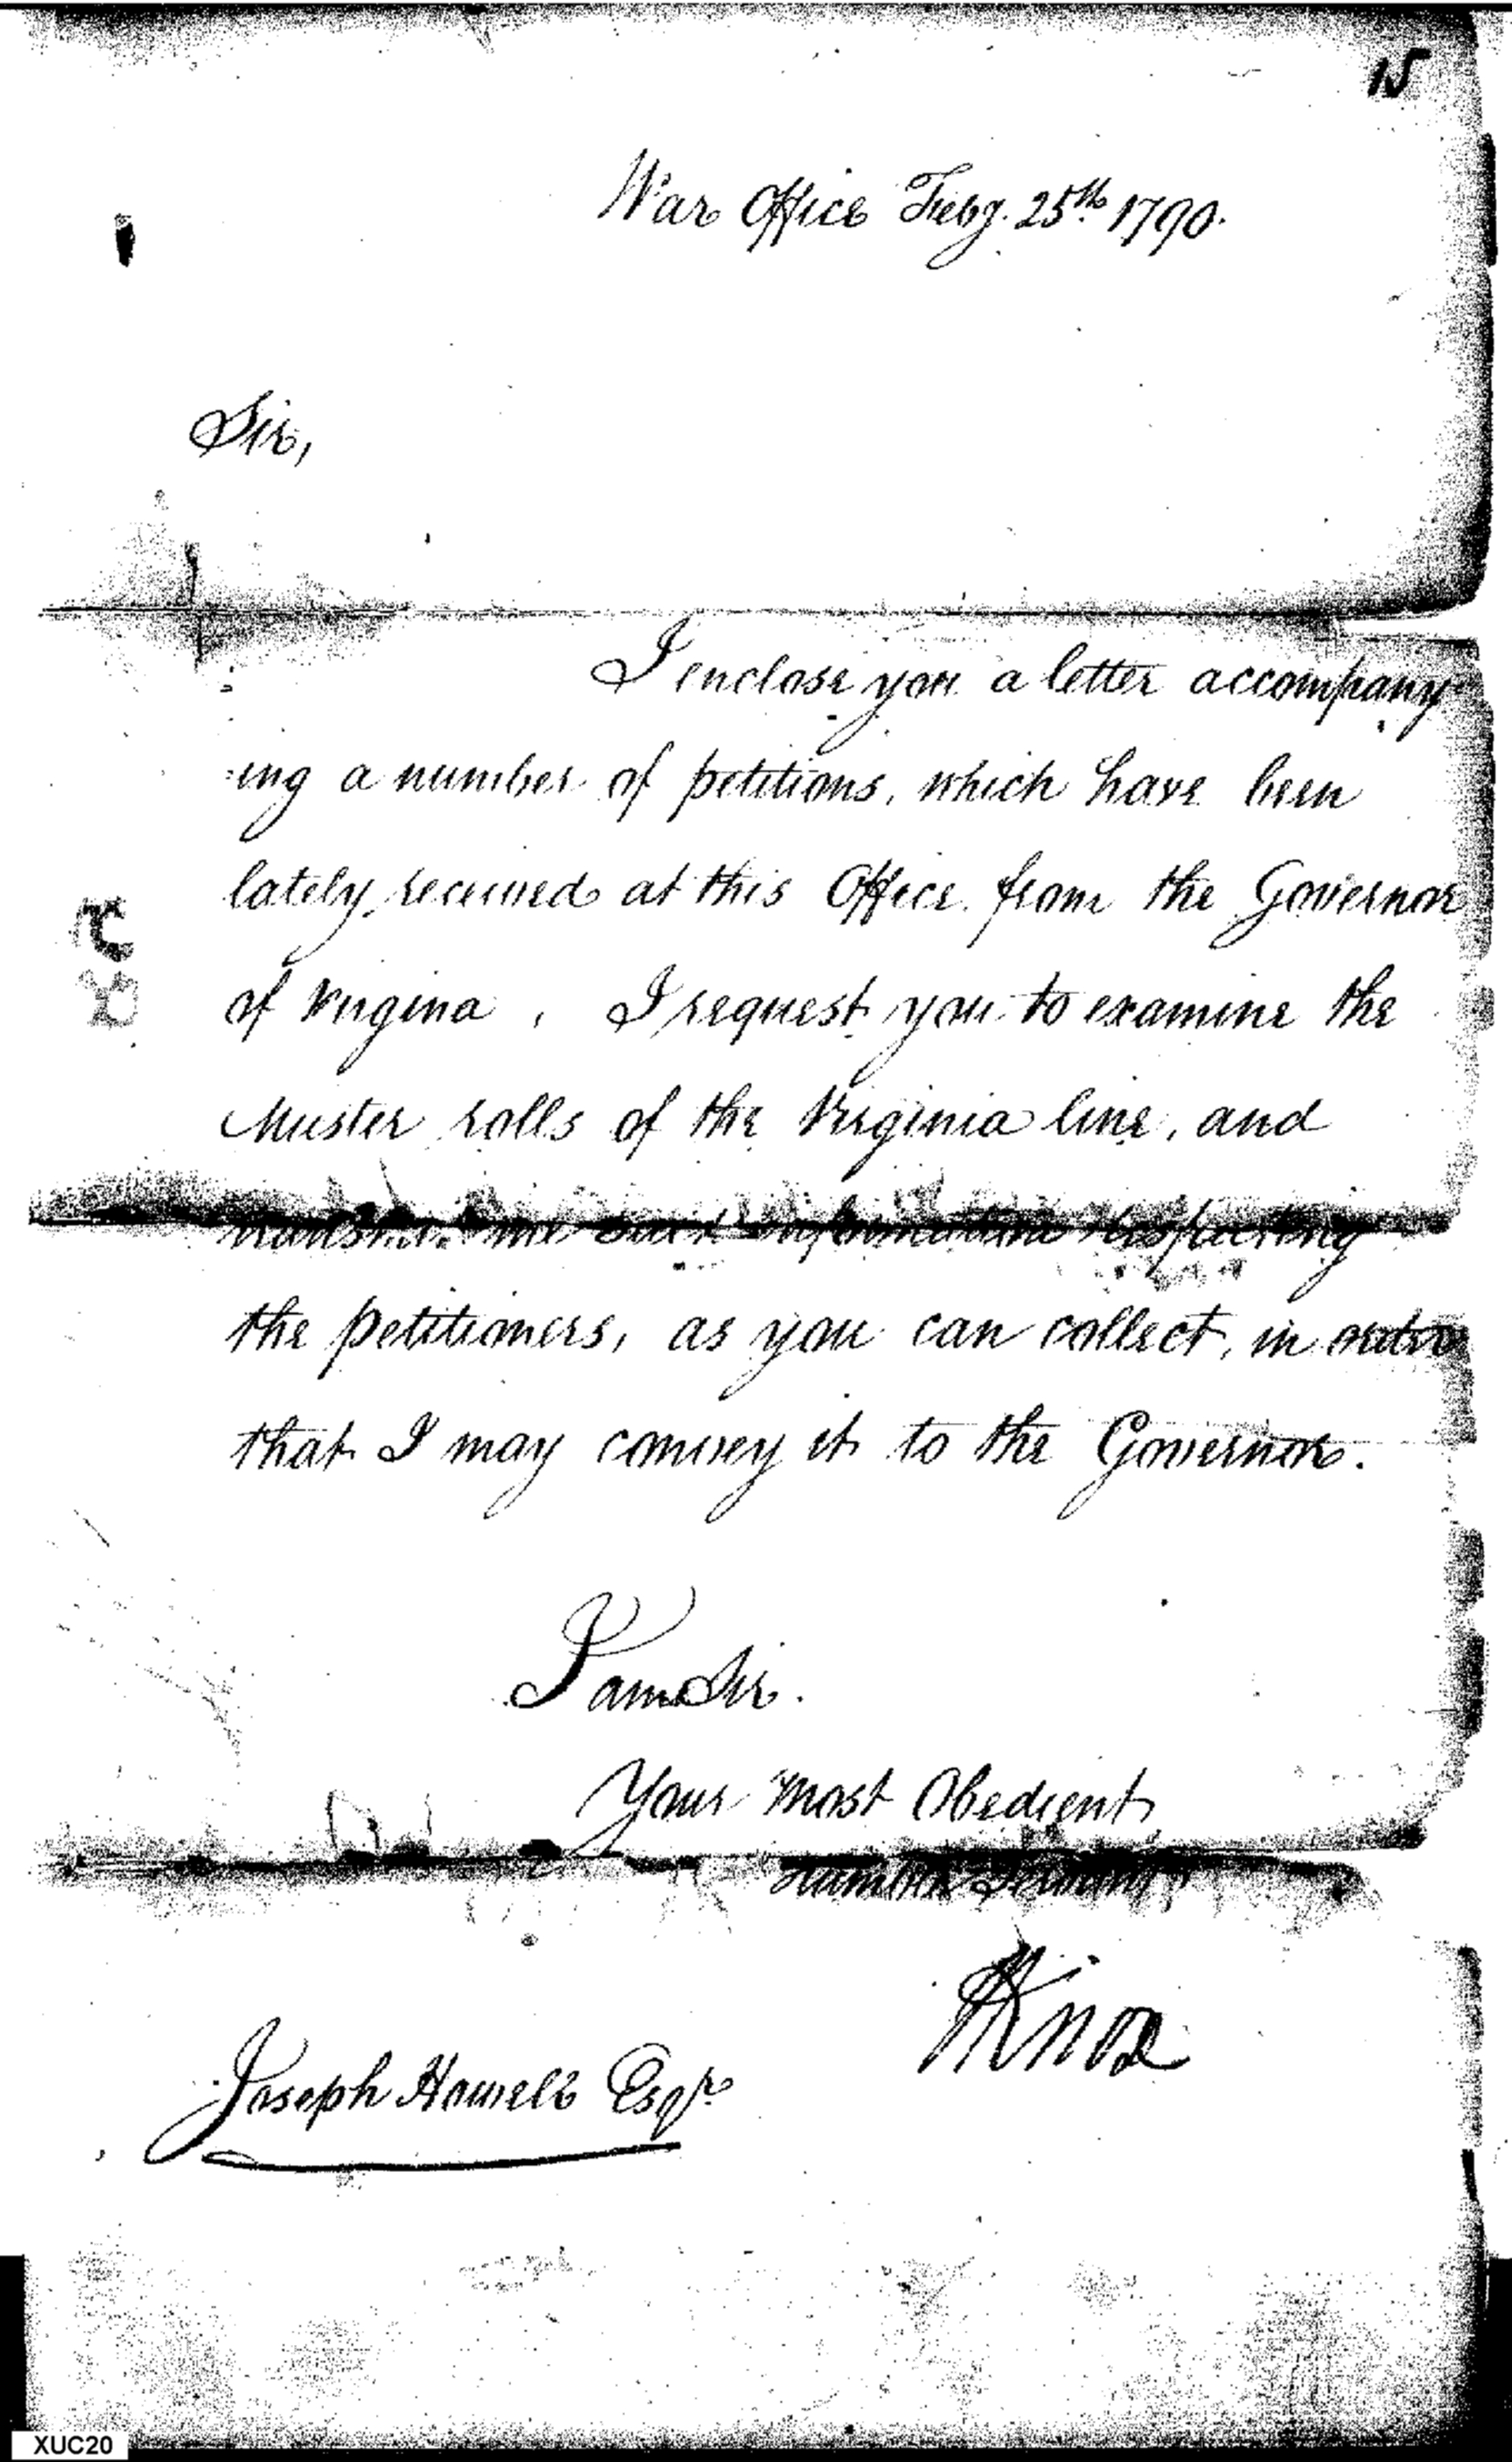 15
War Office Feby. 25th 1790.
Sir,
I enclose you a letter accompany
:ing a number of petitions, which have been
lately received at this Office from the Governor
of Virgina, I request you to examine the
Muster rolls of the Virginia line, and
transmit me such information respecting
the petitioners, as you can collect, in order
that I may convey it to the Governor.
I am Sir.
Your most Obedient,
Humble Servant,
HKnox
Joseph Howell Esqr.
XUC20